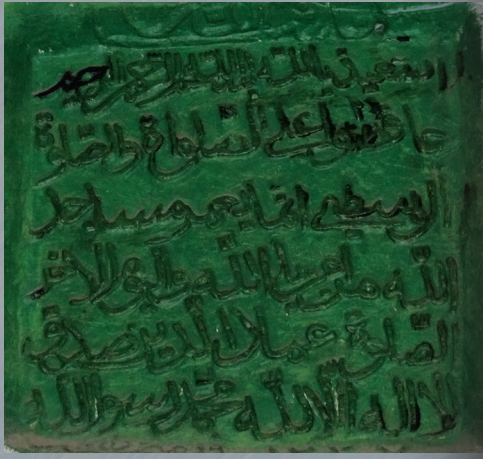 بسم الله الرحمن الرحيم
حافظوا على الصلواة والصلوة
الوسطى انما يعمر مساجد
الله من امن بالله واليوم الاخر
الصلوة عماد الدين صدق
لا اله الا الله محمد رسول الله